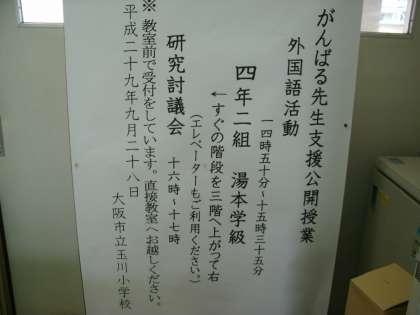 がんばる先生支援公開授業
外国語活動
一四時五十分~十五時三十五分
四年二組 湯本学級
←すぐの階段を三階へ上がって右
(エレベーターもご利用ください。)
研究討議会 十六時~十七時
※教室前で受付をしています。直接教室へお越しください。
平成二十九年九月二十八日
大阪市立玉川小学校